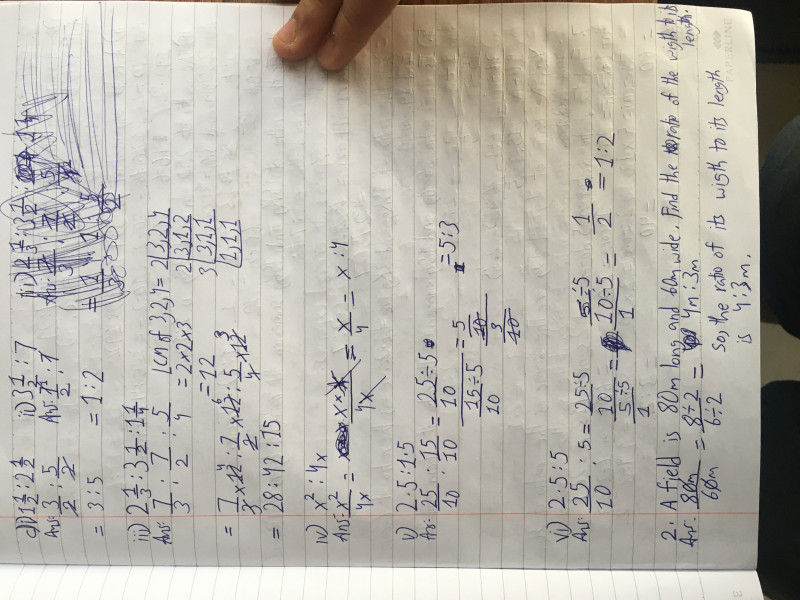 c) i) 1 1/2 : 2 1/2   ii) 3 1/2 : 7
Ans: 3/2 : 5/2   Ans: 7/2 : 7
= 3:5   = 1:2
iii) 2 1/3 : 3 1/2 : 1 1/4
Ans: 7/3 : 7/2 : 5/4   LCM of 3,2,4 = 2 | 3,2,4
= 2×2×3   2 | 3,1,2
= 12   3 | 3,1,1
1,1,1
= 7/3 × 12 4 : 7/2 × 12 6 : 5/4 × 12 3
= 28:42:15
iv) x² : 4x
Ans: x²/4x = x × x/4x = x/4 = x:4
v) 2.5:1.5
Ans: 25/10 : 15/10 = 25÷5/10 / 15÷5/10 = 5/10 / 3/10 = 5:3
vi) 2.5:5
Ans: 25/10 : 5 = 25÷5/10 / 5÷5/1 = 5÷5/10÷5 / 1 = 1/2 = 1:2
2. A field is 80m long and 60m wide. Find the ratio of the wigth to its length.
Ans: 80m/60m = 8÷2/6÷2 = 4m:3m   So, the ratio of its wigth to its length
is 4:3m.
PAPERLINE